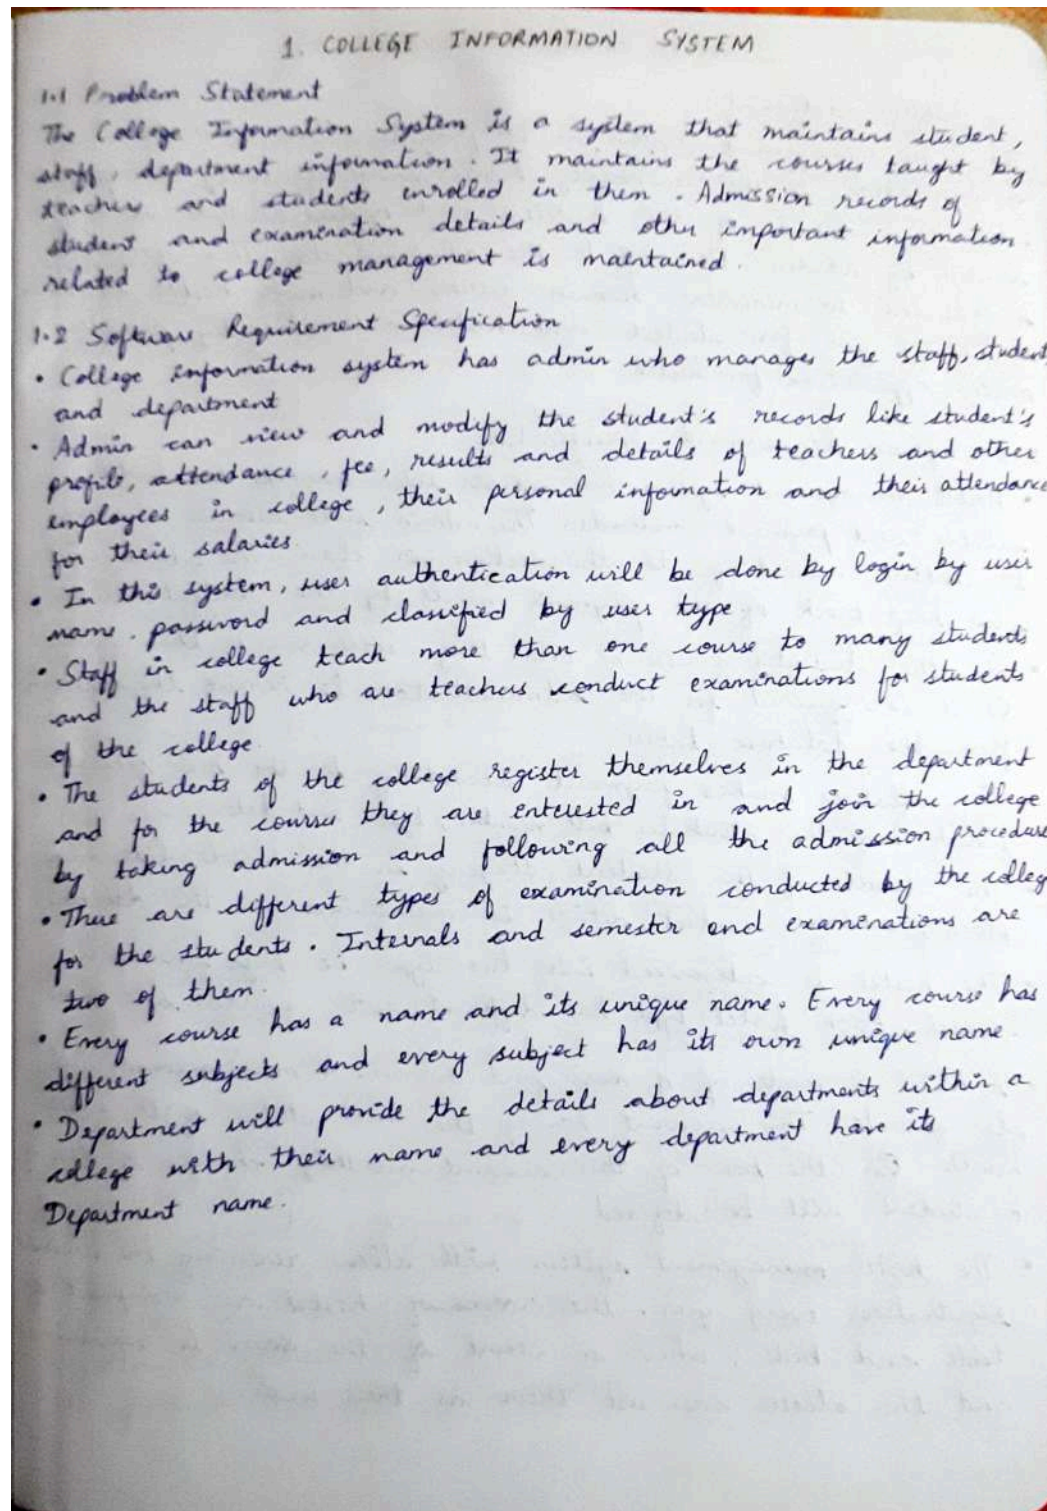 1. COLLEGE INFORMATION SYSTEM
1.1 Problem Statement
The College Information System is a system that maintains student,
staff, department information. It maintains the courses taught by
teachers and students enrolled in them. Admission records of
student and examination details and other important information
related to college management is maintained.
1.2 Software Requirement Specification
• College information system has admin who manages the staff, student
and department
• Admin can view and modify the student's records like student's
profile, attendance, fee, results and details of teachers and other
employees in college, their personal information and their attendance
for their salaries.
• In this system, user authentication will be done by login by user
name, password and classified by user type
• Staff in college teach more than one course to many students
and the staff who are teachers conduct examinations for students
of the college.
• The students of the college register themselves in the department
and for the courses they are interested in and join the college
by taking admission and following all the admission procedure
• There are different types of examination conducted by the colleg
for the students. Internals and semester end examinations are
two of them.
• Every course has a name and its unique name. Every course has
different subjects and every subject has its own unique name
• Department will provide the details about departments within a
college with their name and every department have its
Department name.